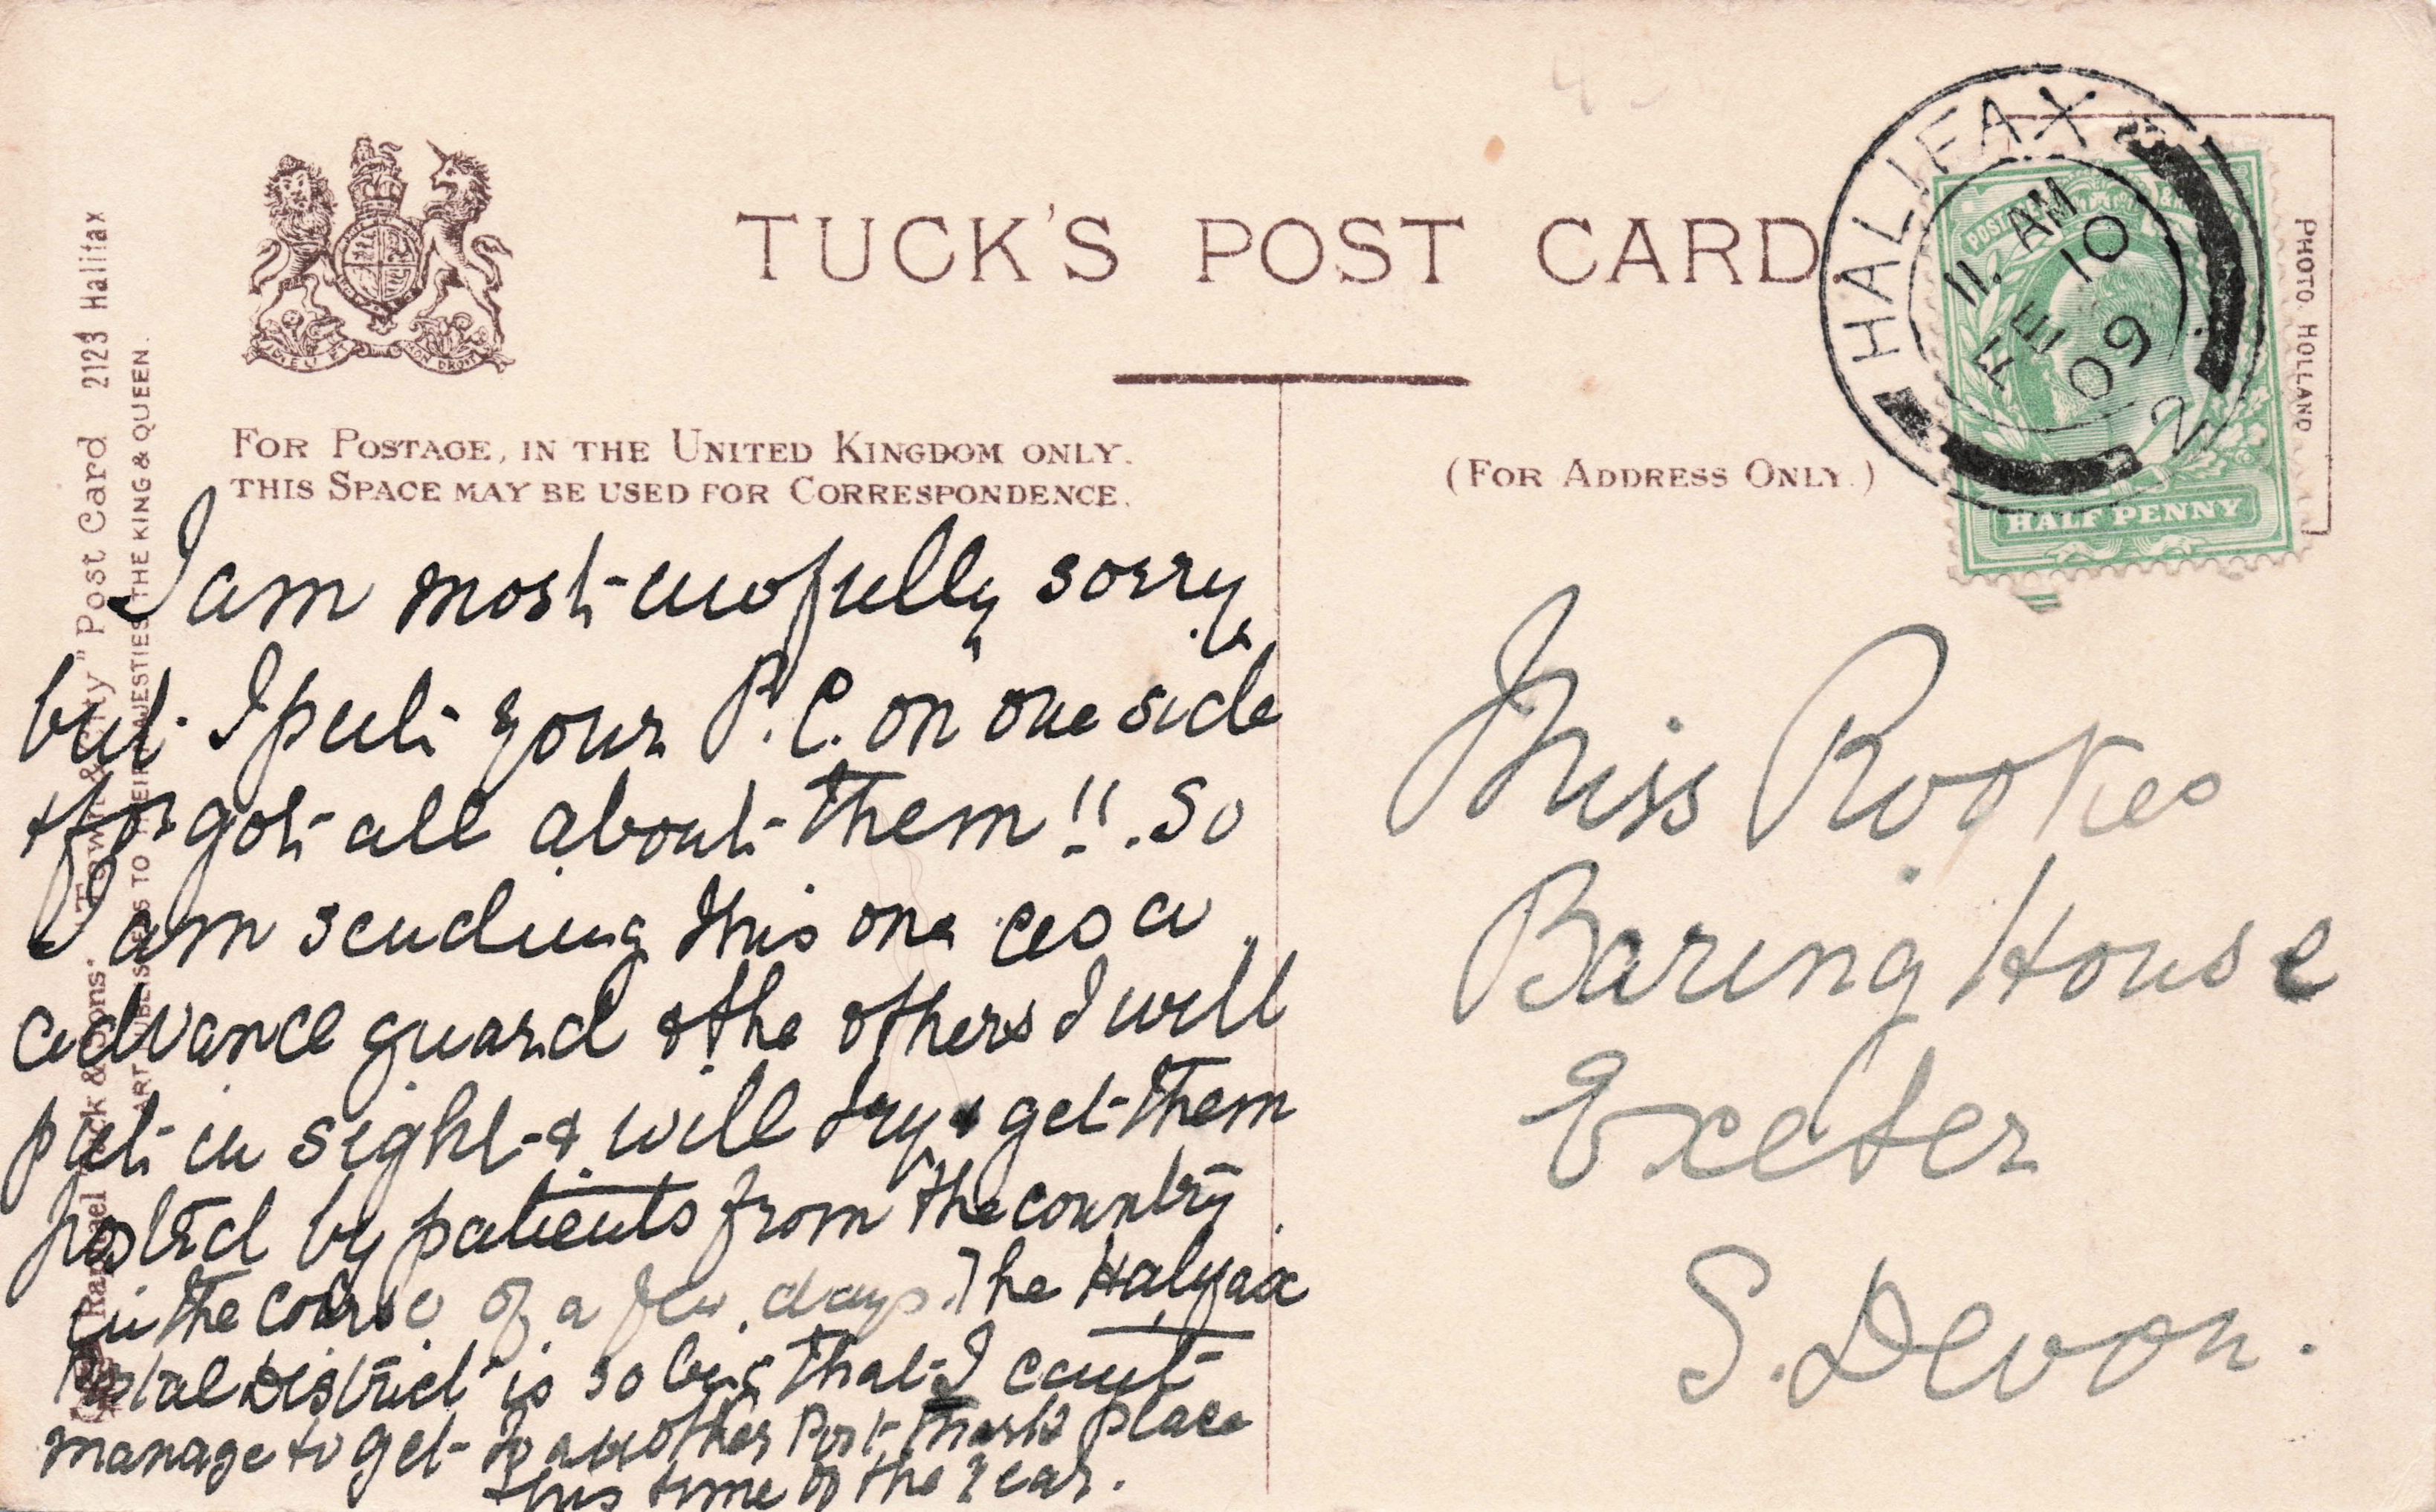 TUCK'S POST CARD
FOR POSTAGE, IN THE UNITED KINGDOM ONLY.
THIS SPACE MAY BE USED FOR CORRESPONDENCE.
(FOR ADDRESS ONLY.)
HALIFAX
11. AM
FE 10
09
2
POSTAGE
HALF PENNY
PHOTO. HOLLAND
Raphael Tuck & Sons' "Town & City" Post Card 2123 Halifax
ART PUBLISHERS TO THEIR MAJESTIES THE KING & QUEEN.
I am most awfully sorry,
but I put your P.C. on one side
& forgot all about them!!. So
I am sending this one as a
advance guard & the others I will
put in sight & will try & get them
posted by patients from the country
in the course of a few days. The Halifax
Postal District is so big that I can't
manage to get to another Post-mark place
this time of the year.
Miss Rookes
Baring House
Exeter
S. Devon.